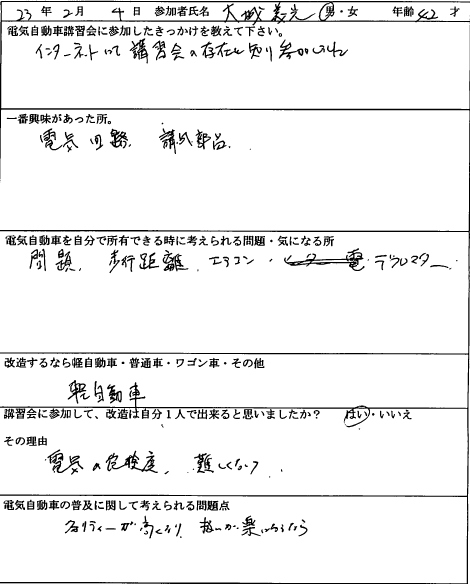 23 年 2 月 4 日 参加者氏名 大城 男・女 年齢 42 才
電気自動車講習会に参加したきっかけを教えて下さい。
インターネットにて講習会の存在を知り参加しました
一番興味があった所。
電気回路、 部品、
電気自動車を自分で所有できる時に考えられる問題・気になる所
問題、歩行距離、エアコン・ デフロスター
改造するなら軽自動車・普通車・ワゴン車・その他
軽自動車
講習会に参加して、改造は自分1人で出来ると思いましたか? はい・いいえ
その理由
電気の危険度、難しくない
電気自動車の普及に関して考えられる問題点
ティーが高くなり 扱いが楽になるなら